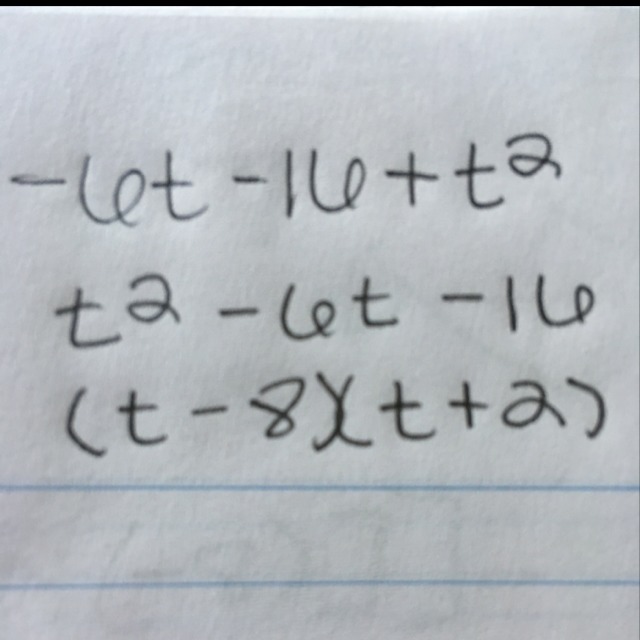 -6t -16 + t²
t² - 6t - 16
(t - 8)(t + 2)